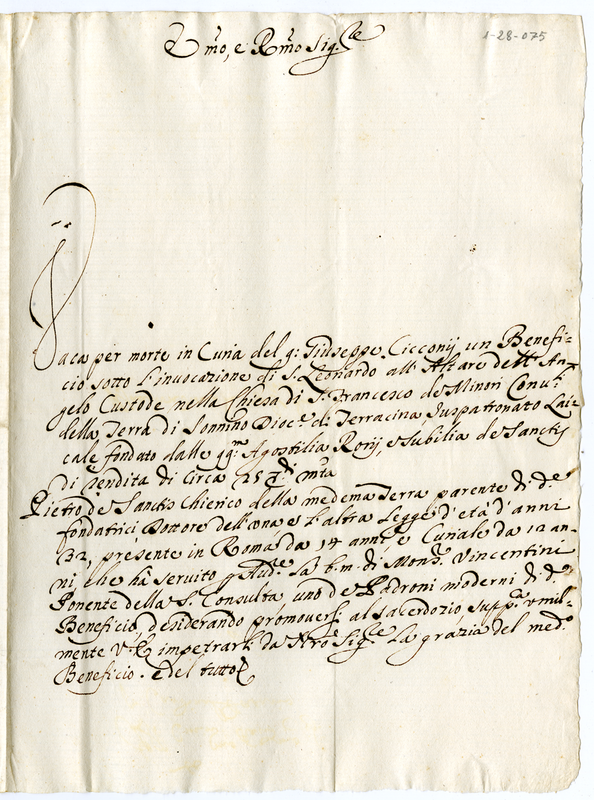 1-28-075
Emo, e Rmo Sig.re
Vaca per morte in Curia del q: Giuseppe Cicconij un Benefi-
cio sotto l'invocazione di S. Leonardo all'Altare dell'An-
gelo Custode nella Chiesa di S. Francesco de Minori Conv.li
della Terra di Sonnino Dioc.e di Terracina, Juspatronato Lai-
cale fondato dalle qq.m Agostilia Rorij, e Subilia de Sanctis
di rendita di circa 25
Pietro de Sanctis Chierico della medema Terra parente di d.e
fondatrici, Dottore dell'una e l'altra Legge d'età d'anni
32, presente in Roma da 14 anni e Curiale da 12 an-
ni che hà servito p Aud.e la b.m. di Mons.r Vincentini
Ponente della S. Consulta uno de Padroni moderni di d.o
Beneficio, desiderando promoversi al sacerdozio, supp.ca umil-
mente V.E. impetrarli da Nro Sig.re la grazia del med.o
Beneficio. E del tutto